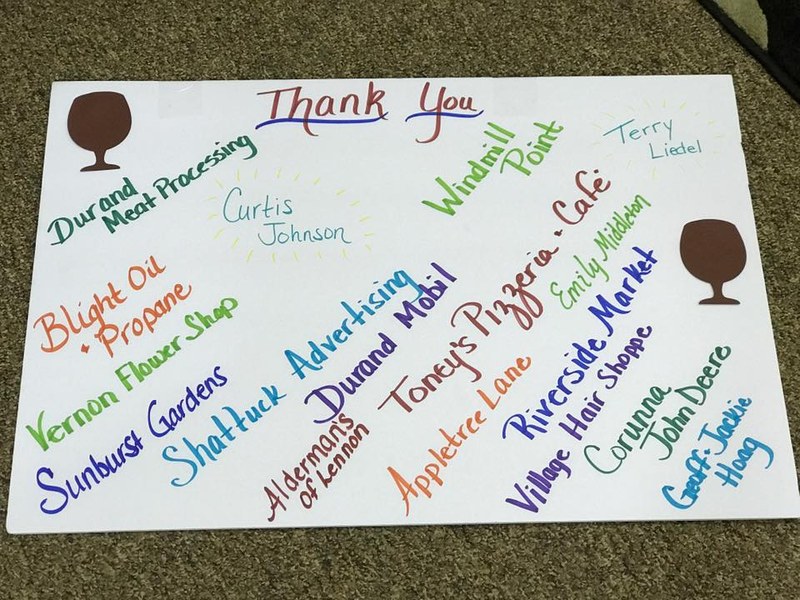 Thank You
Durand
Meat Processing
Curtis
Johnson
Windmill
Point
Terry
Liedel
Blight Oil
• Propane
Vernon Flower Shop
Sunburst Gardens
Shattuck Advertising
Durand Mobil
Alderman's
of Lennon
Toney's Pizzeria • Café
Emily Middleton
Appletree Lane
Riverside Market
Village Hair Shoppe
Corunna
John Deere
Geoff • Jackie
Haag